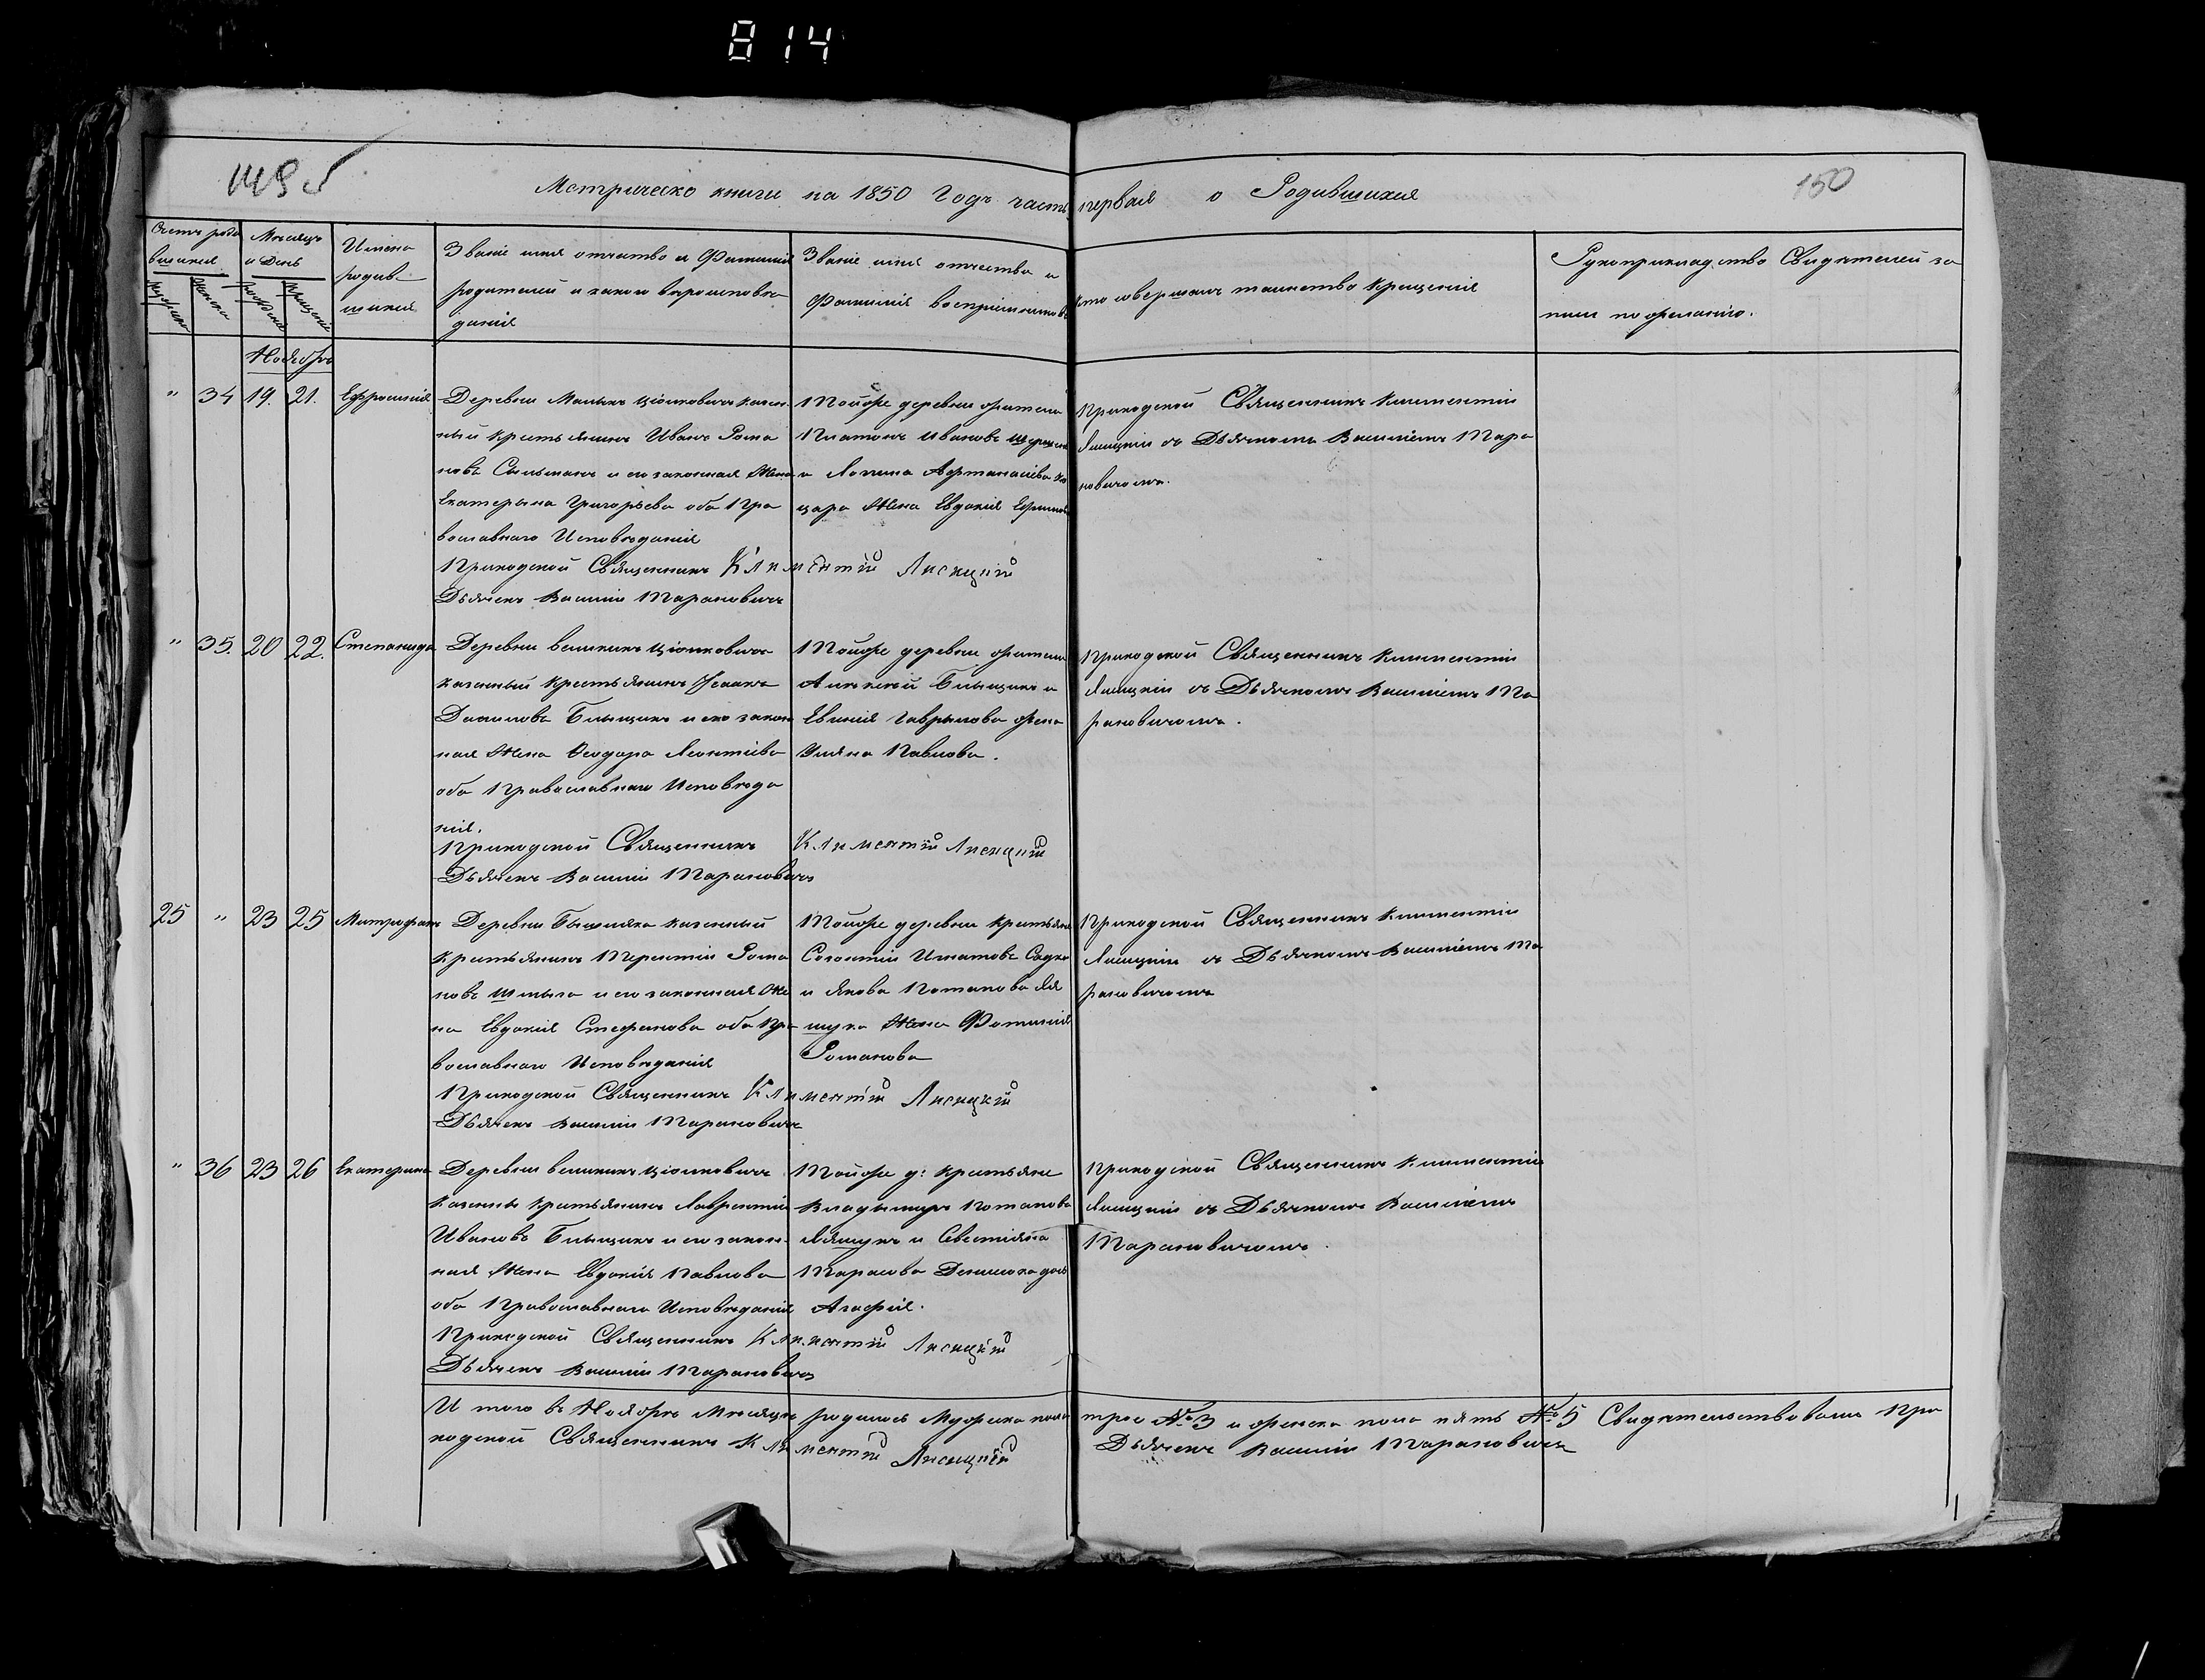 814
149 об
150
Метрическо книги на 1850 Годъ часть первая о Родившихся
Счетъ роди
вшихся
Мѣсяцъ
и День
Имена
родив
шихся
Званіе имя отчество и Фамилія
родителей и какого вѣроисповѣ
данія
Званіе имя отчества и
Фамилія воспріемниковъ
кто совершалъ таинство крещенія
Рукоприкладство Свидѣтелей за
писи по желанію.
Ноябрь
" 34 19. 21. Ефросинія
Деревни Малыхъ Ціолковичъ казен
ный крестьянинъ Иванъ Рома
новъ и его законная Жена
Екатерина Григорьева оба Пра
вославнаго Исповѣданія
Приходской Священникъ Климентій Лисицкій
Дьячекъ Василій Тарановичъ
Тойже деревни жители
Платонъ Ивановъ
и Аофанасіева
Жена Евдокія
Приходской Священникъ Климентій
Лисицкій съ Дьячкомъ Василіемъ Тара
новичомъ.
" 35. 20 22. Степанида
Деревни великихъ Ціолковичъ
казенный крестьянинъ Исаакъ
Даниловъ и его закон
ная Жена Феодора Леонтіева
оба Православнаго Исповѣда
нія.
Приходской Священникъ Климентій Лисицкій
Дьячекъ Василій Тарановичъ
Тойже деревни жители
Алексѣй и
Гаврылова жена
Уліяна Павлова.
Приходской Священникъ Климентій
Лисицкій съ Дьячкомъ Василіемъ Та
рановичомъ.
25 " 23 25 Митрофанъ
Деревни казенный
крестьянинъ Терентій Рома
новъ и его законная Же
на Евдокія Стефанова оба Пра
вославнаго Исповѣданія
Приходской Священникъ Климентій Лисицкій
Дьячекъ Василій Тарановичъ
Тойже деревни крестьяне
Игнатовъ
и Якова Потапова Ля
шука Жена Фотинія
Романова
Приходской Священникъ Климентій
Лисицкій съ Дьячкомъ Василіемъ Та
рановичомъ
" 36 23 26 Екатерина
Деревни великихъ Ціолковичъ
казенный крестьянинъ Лаврентій
Ивановъ и его закон
ная Жена Евдокія Павлова
оба Православнаго Исповѣданія
Приходской Священникъ Климентій Лисицкій
Дьячекъ Василій Тарановичъ
Тойже д: крестьяне
Владымиръ Потаповъ
Ляшукъ и
Тарасова дочь
Агафія.
Приходской Священникъ Климентій
Лисицкій съ Дьячкомъ Василіемъ
Тарановичомъ.
И того въ Ноябрѣ Мѣсяцѣ родилось Мужеска пола трое № 3 и женска пола пять № 5 Свидѣтельствовали При
ходской Священникъ Климентій Лисицкій Дьячекъ Василій Тарановичъ